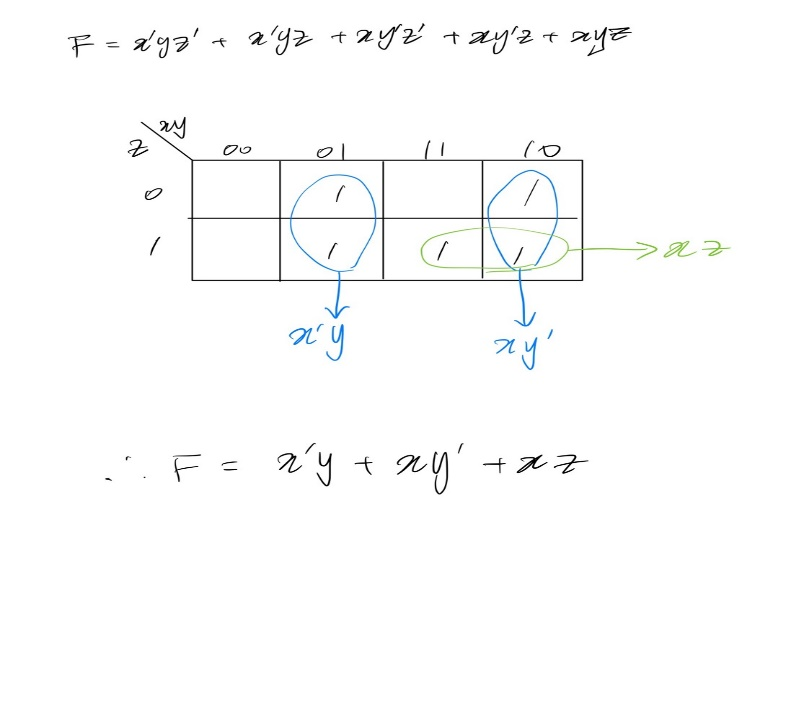 F = x'yz' + x'yz + xy'z' + xy'z + xyz
xy
z 00 01 11 10
0 1 1
1 1 1 1 xz
x'y xy'
∴ F = x'y + xy' + xz